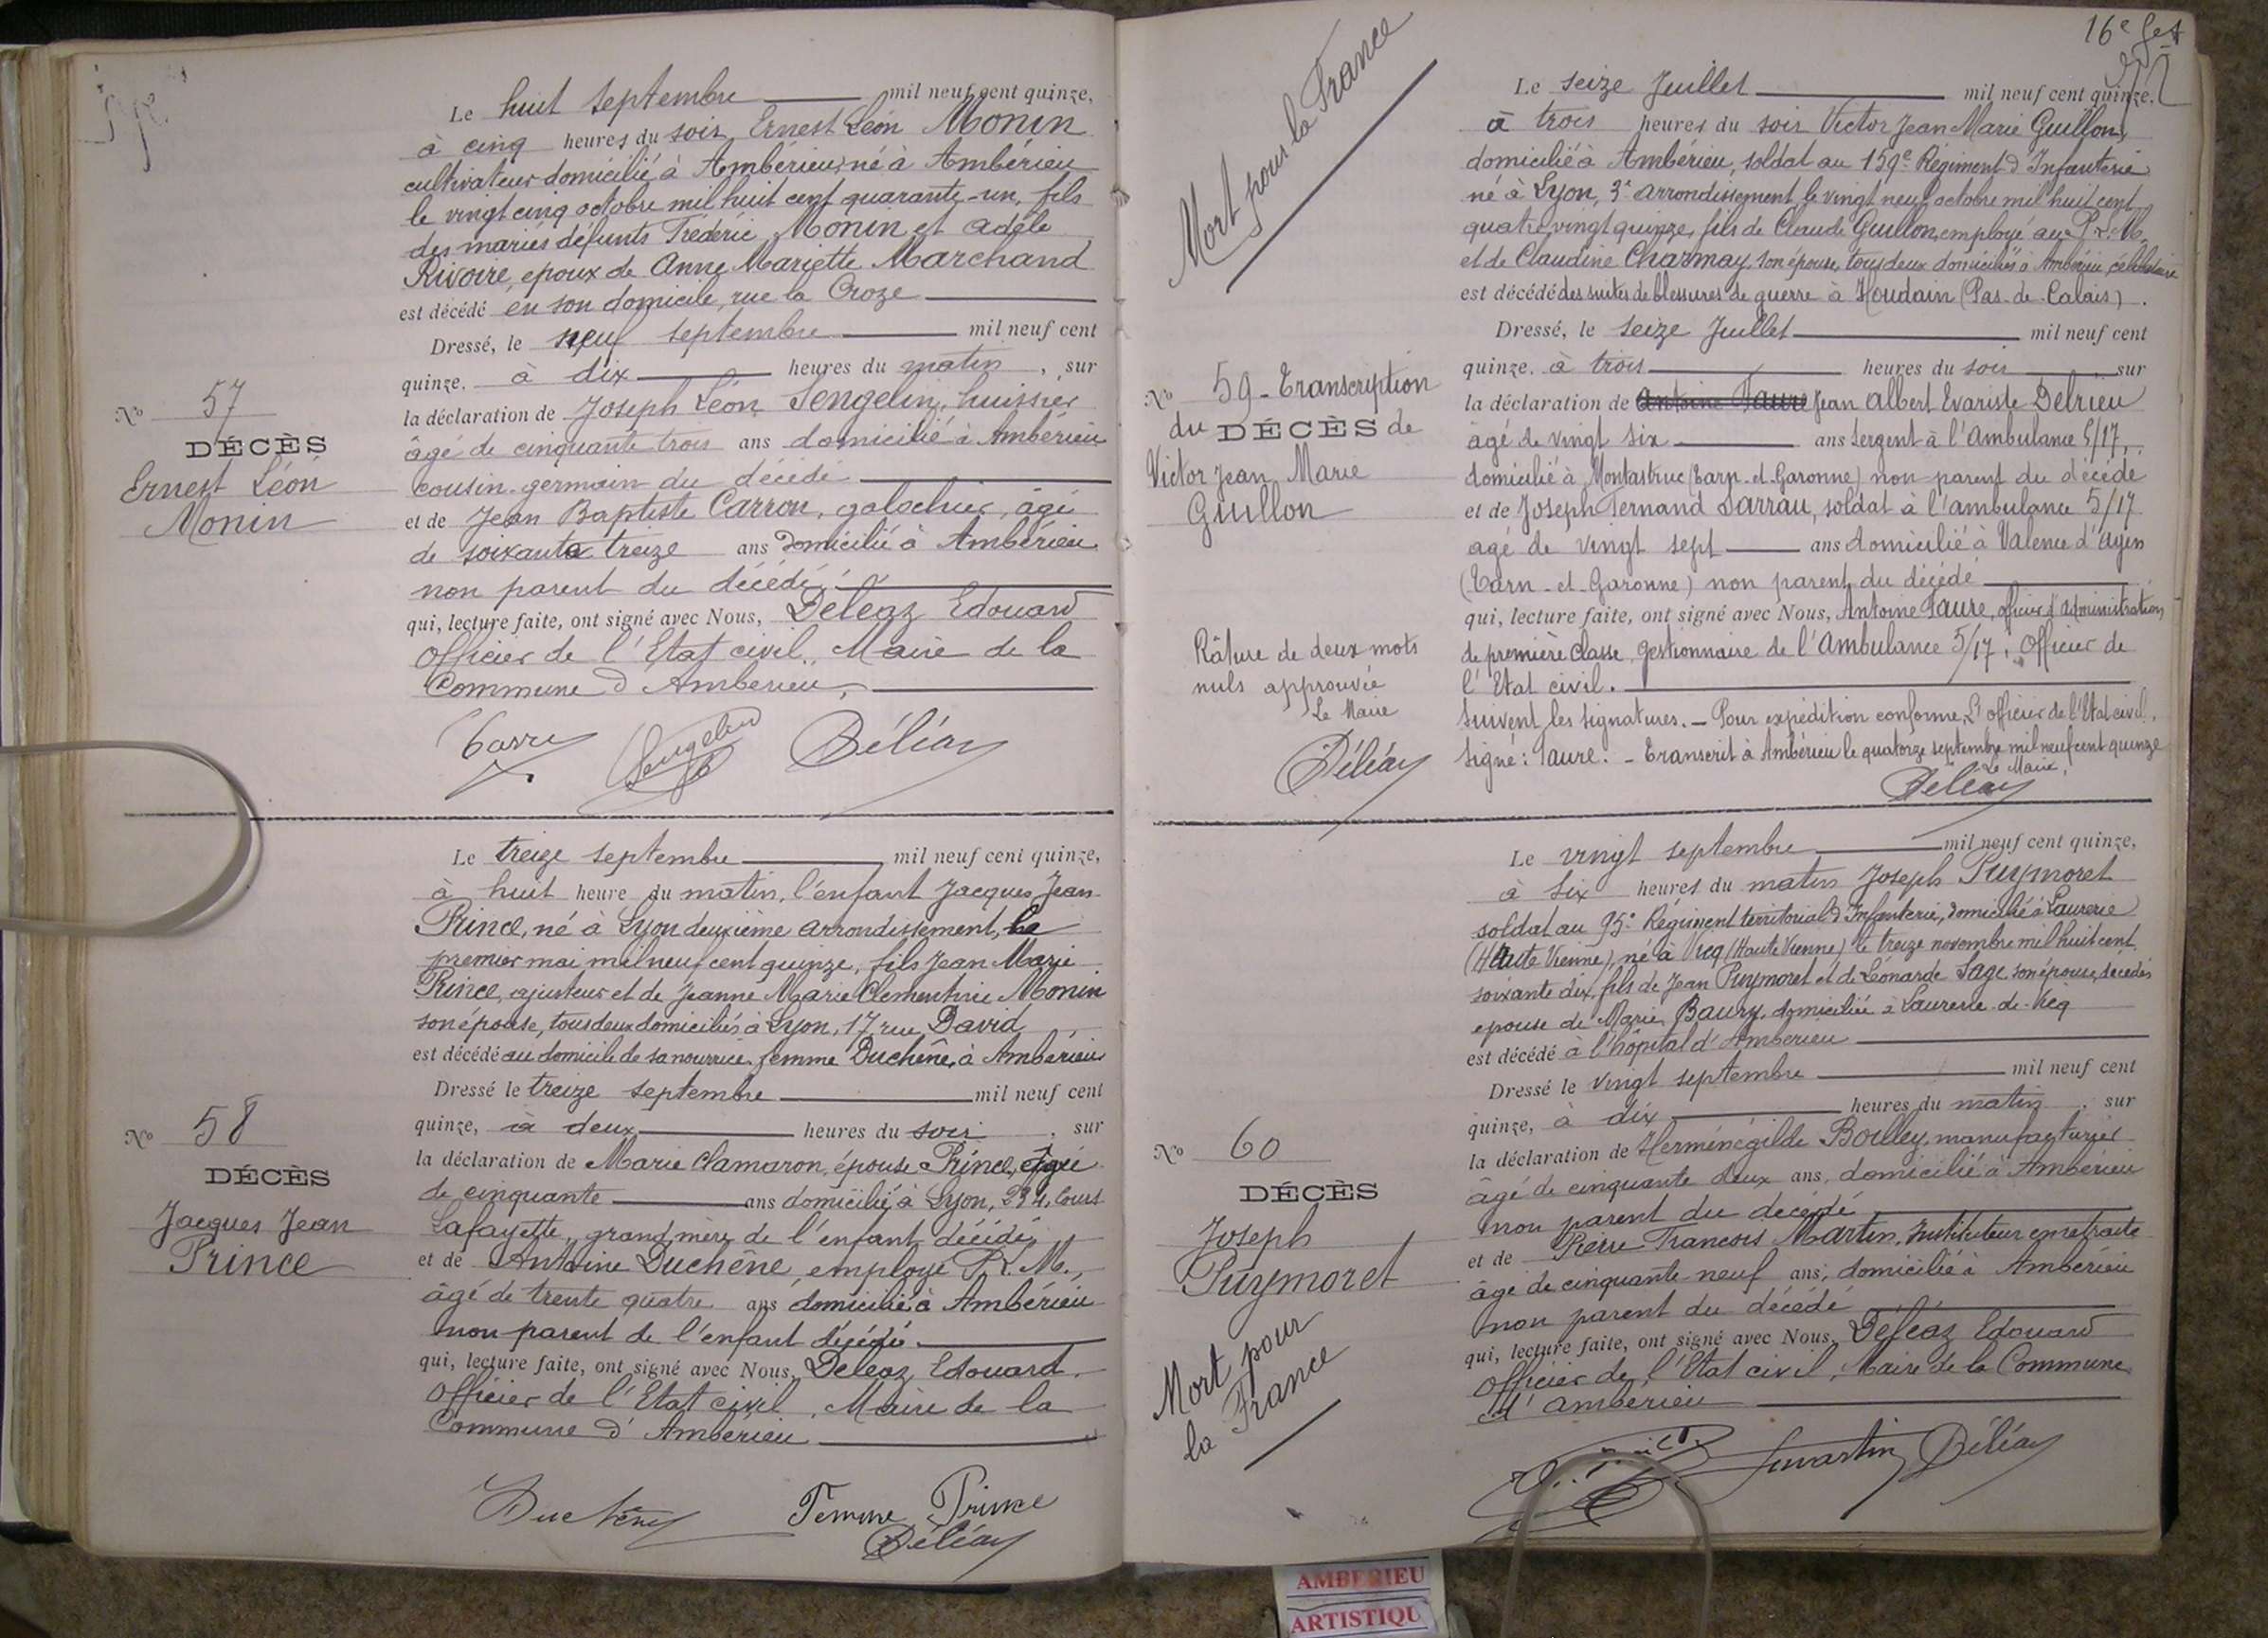 Le huit septembre mil neuf cent quinze,
à cinq heures du soir Ernest Léon Monin
cultivateur domicilié à Ambérieu, né à Ambérieu
le vingt cinq octobre mil huit cent quarante-un, fils
des mariés défunts Frédéric Monin et Adèle
Rivoire, époux de Anne Mariette Marchand
est décédé en son domicile, rue la Croze
Dressé, le neuf septembre mil neuf cent
quinze, à dix heures du matin, sur
la déclaration de Joseph Léon Sengelin, huissier
âgé de cinquante trois ans domicilié à Ambérieu
cousin germain du décédé
et de Jean Baptiste Carron, galochier, âgé
de soixante treize ans domicilié à Ambérieu
non parent du décédé
qui, lecture faite, ont signé avec Nous, Deléaz Edouard
Officier de l'Etat civil, Maire de la
Commune d'Ambérieu,
Déléaz
No 57
DÉCÈS
Ernest Léon
Monin
Le treize septembre mil neuf cent quinze,
à huit heure du matin, l'enfant Jacques Jean
Prince, né à Lyon deuxième arrondissement, le
premier mai mil neuf cent quinze, fils Jean Marie
Prince, ajusteur et de Jeanne Marie Clementine Monin
son épouse, tous deux domiciliés à Lyon, 17, rue David
est décédé au domicile de sa nourrice femme Duchêne, à Ambérieu
Dressé le treize septembre mil neuf cent
quinze, à deux heures du soir, sur
la déclaration de Marie Clamaron, épouse Prince, âgée
de cinquante ans domicilié à Lyon, 234, Cours
Lafayette, grand'mère de l'enfant décédé
et de Antoine Duchêne, employé P.L.M.,
âgé de trente quatre ans domicilié à Ambérieu
non parent de l'enfant décédé
qui, lecture faite, ont signé avec Nous, Deleaz Edouard
Officier de l'Etat civil, Maire de la
Commune d'Ambérieu
Duchêne Femme Prince
Déléaz
No 58
DÉCÈS
Jacques Jean
Prince
16e
Mort pour la France
Le seize Juillet mil neuf cent quinze,
à trois heures du soir Victor Jean Marie Guillon,
domicilié à Ambérieu, soldat au 159e Régiment d'Infanterie
né à Lyon, 3e arrondissement le vingt neuf octobre mil huit cent
quatre vingt quinze, fils de Claude Guillon, employé au P.L.M.
et de Claudine Charmay, son épouse, tous deux domiciliés à Ambérieu, célibataire
est décédé des suites de blessures de guerre à Houdain (Pas-de-Calais).
Dressé, le seize Juillet mil neuf cent
quinze, à trois heures du soir sur
la déclaration de Antoine Faure Jean Albert Evariste Delrieu
âgé de vingt six ans Sergent à l'Ambulance 5/17,
domicilié à Montastruc (Tarn-et-Garonne) non parent du décédé
et de Joseph Fernand Sarrau, soldat à l'ambulance 5/17
âgé de vingt sept ans domicilié à Valence d'Agen
(Tarn-et-Garonne) non parent du décédé
qui, lecture faite, ont signé avec Nous, Antoine Faure, officier d'administration
de première classe, gestionnaire de l'Ambulance 5/17, Officier de
l'Etat civil.
Suivent les signatures. - Pour expédition conforme, L'officier de l'Etat civil.
Signé: Faure. - Transcrit à Ambérieu le quatorze septembre mil neuf cent quinze
Le Maire,
Déléaz
No 59 - Transcription
du DÉCÈS de
Victor Jean Marie
Guillon
Râture de deux mots
nuls approuvée
Le Maire
Déléaz
Le vingt septembre mil neuf cent quinze,
à six heures du matin Joseph Puymoret
soldat au 95e Régiment territorial d'Infanterie, domicilié à Laurerie
(Haute Vienne), né à Vicq (Haute Vienne) le treize novembre mil huit cent
soixante dix, fils de Jean Puymoret et de Léonarde Sage son épouse, décédés
epouse de Marie Baury, domiciliée à Laurerie-de-Vicq
est décédé à l'hôpital d'Ambérieu
Dressé le vingt septembre mil neuf cent
quinze, à dix heures du matin, sur
la déclaration de Herménégilde Boulley, manufacturier
âgé de cinquante deux ans, domicilié à Ambérieu
non parent du décédé
et de Pierre François Martin, Instituteur en retraite
âge de cinquante-neuf ans, domicilié à Ambérieu
non parent du décédé
qui, lecture faite, ont signé avec Nous, Déléaz Edouard
Officier de l'Etat civil, Maire de la Commune
d'Ambérieu
Martin Déléaz
No 60
DÉCÈS
Joseph
Puymoret
Mort pour
la France
AMBERIEU
ARTISTIQU